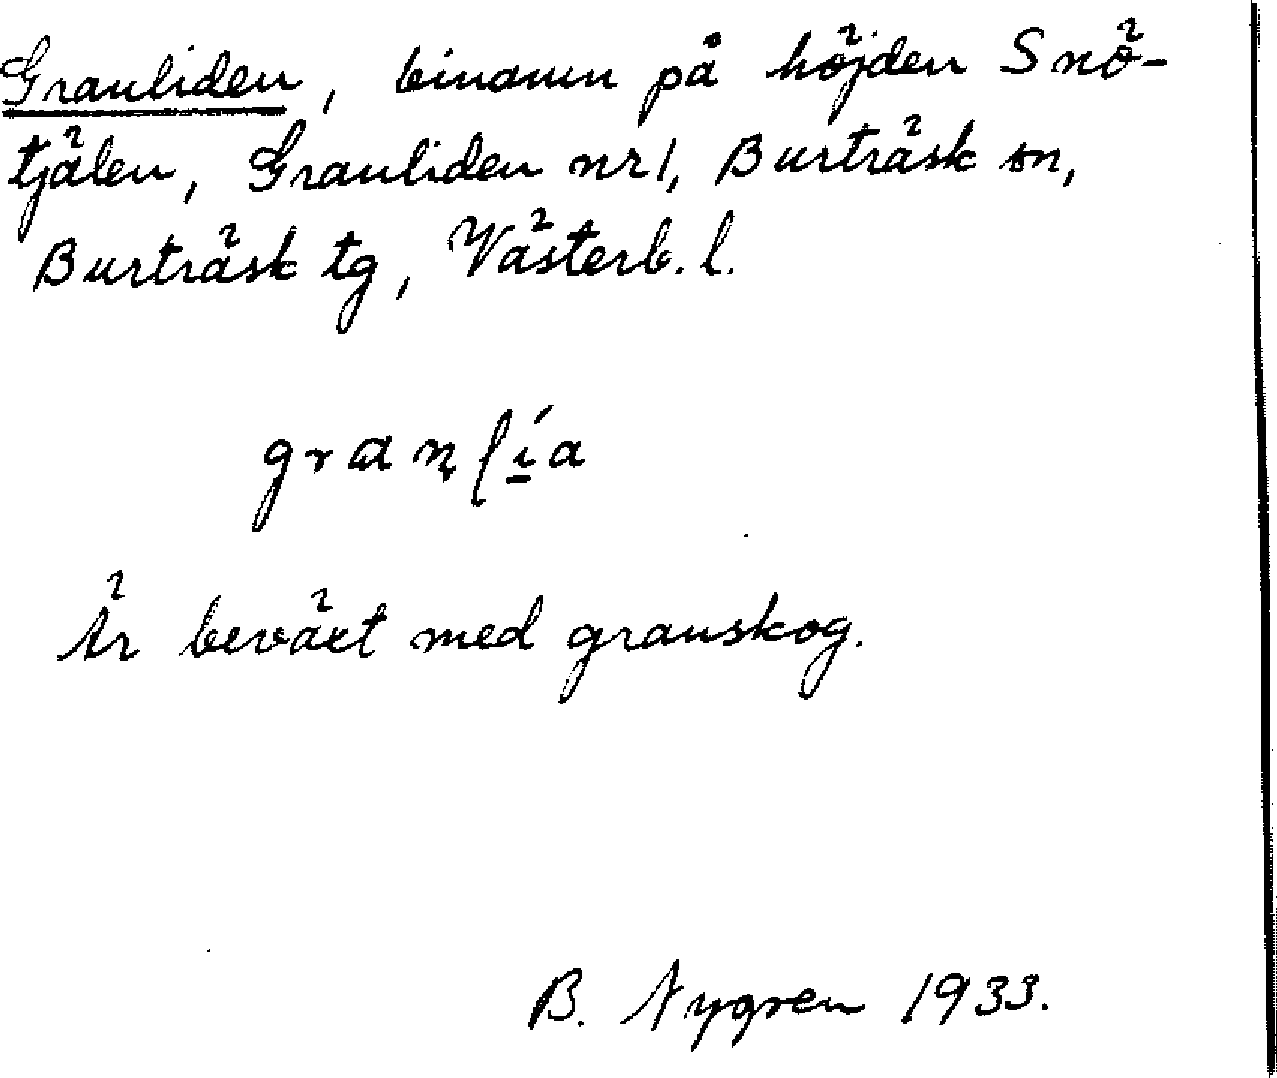 Granliden, binamn på höjden Snö-
tjälen, Granliden nr 1, Burträsk sn,
Burträsk tg, Västerb. l.
granlía
Är beväxt med granskog.
B. Nygren 1933.